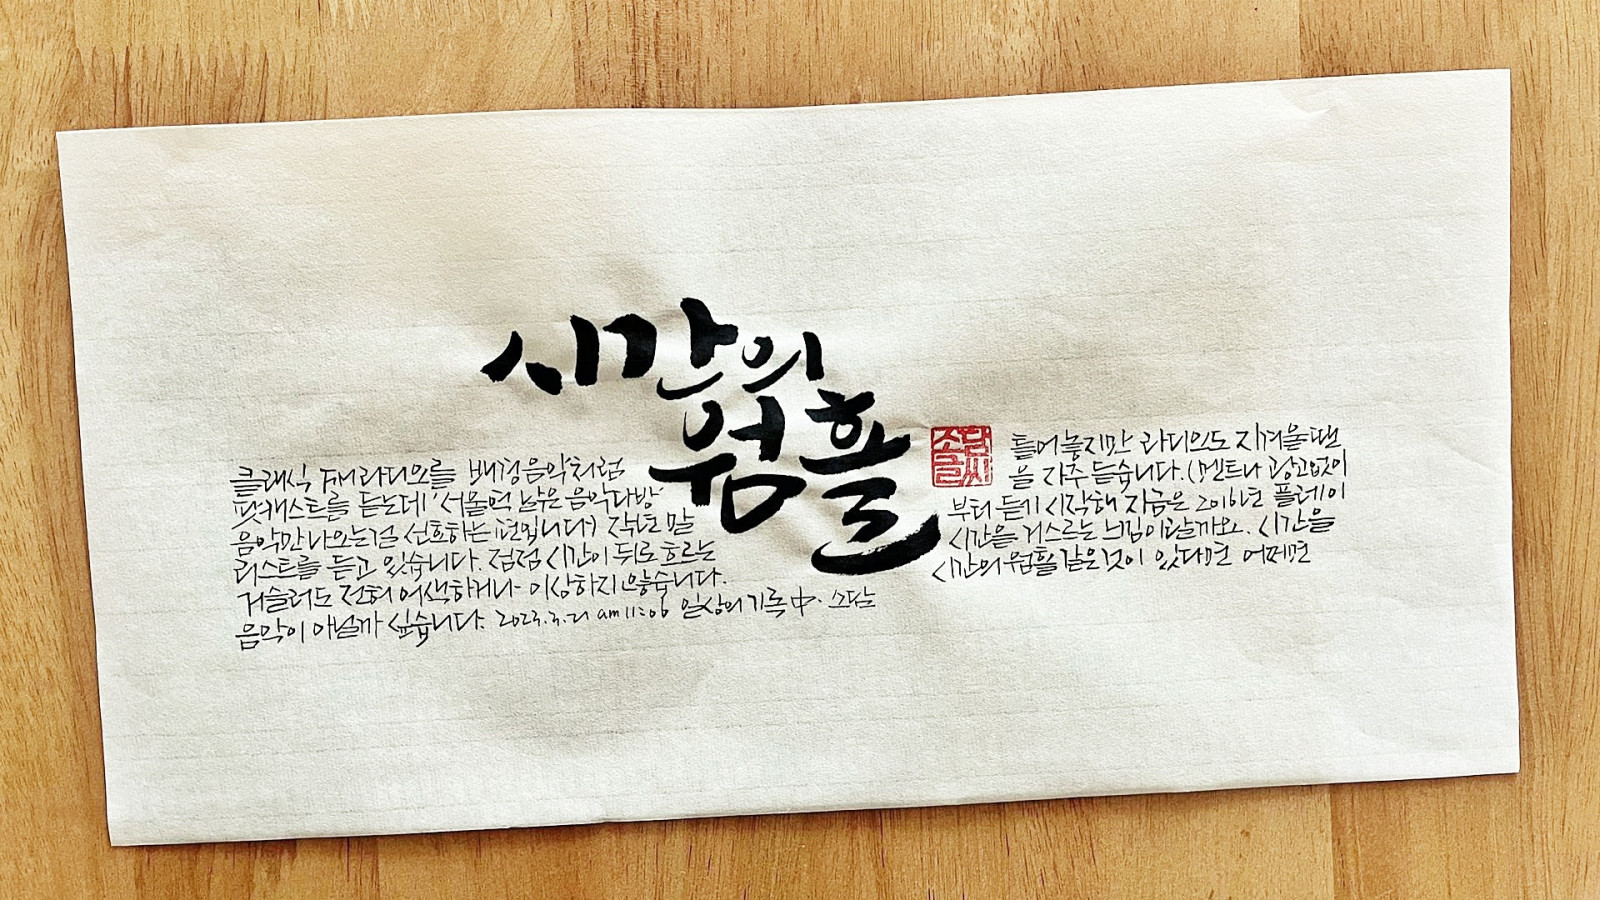 시간의
웜홀
소담
글씨
클래식 FM라디오를 배경음악처럼 틀어놓지만 라디오도 지겨울땐
팟캐스트를 듣는데 '서울역 낡은 음악다방'을 자주 듣습니다.(멘트나 광고없이
음악만 나오는걸 선호하는 편입니다) 작년 말부터 듣기 시작해 지금은 2016년 플레이
리스트를 듣고 있습니다. 점점 시간이 뒤로 흐르는 시간을 거스르는 느낌이랄까요. 시간을
거슬러도 전혀 어색하거나 이상하지 않습니다. 시간의 웜홀 같은것이 있다면 어쩌면
음악이 아닐까 싶습니다. 2023.3.21 am 11:06 일상의 기록 中. 소담